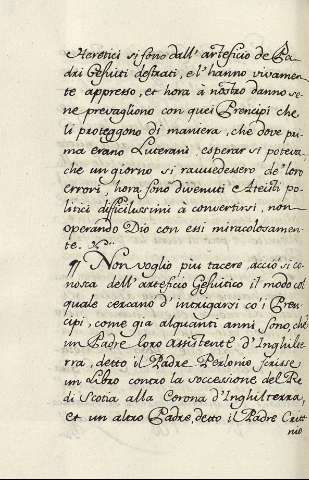 Heretici si sono dall' arteficio de Pa-
dri Gesuiti destati, e l' hanno vivamen-
te appresso, et hora à nostro danno se
ne prevagliono con quei Prencipi che
li proteggono di maniera, che dove pri-
ma erano Luterani, esperar si poteva
che un giorno si ravvedessero de' loro
errori, hora sono divenuti Ateisti po-
litici dificilissimi à convertirsi, non
operando Dio con essi miracolosamen-
te.
¶ Non voglio piu tacere, acciò si co-
nosca dell' arteficio Gesuitico il modo col
quale cercano d' intrigarsi co' i Pren-
cipi, come già alquanti anni sono, che
un Padre loro assistente d' Inghilter-
ra, detto il Padre Personio scrisse
un Libro contro la soccessione del Re
di Scotia alla Corona d' Inghilterra,
et un altro Padre, detto il Padre Critt-
nio